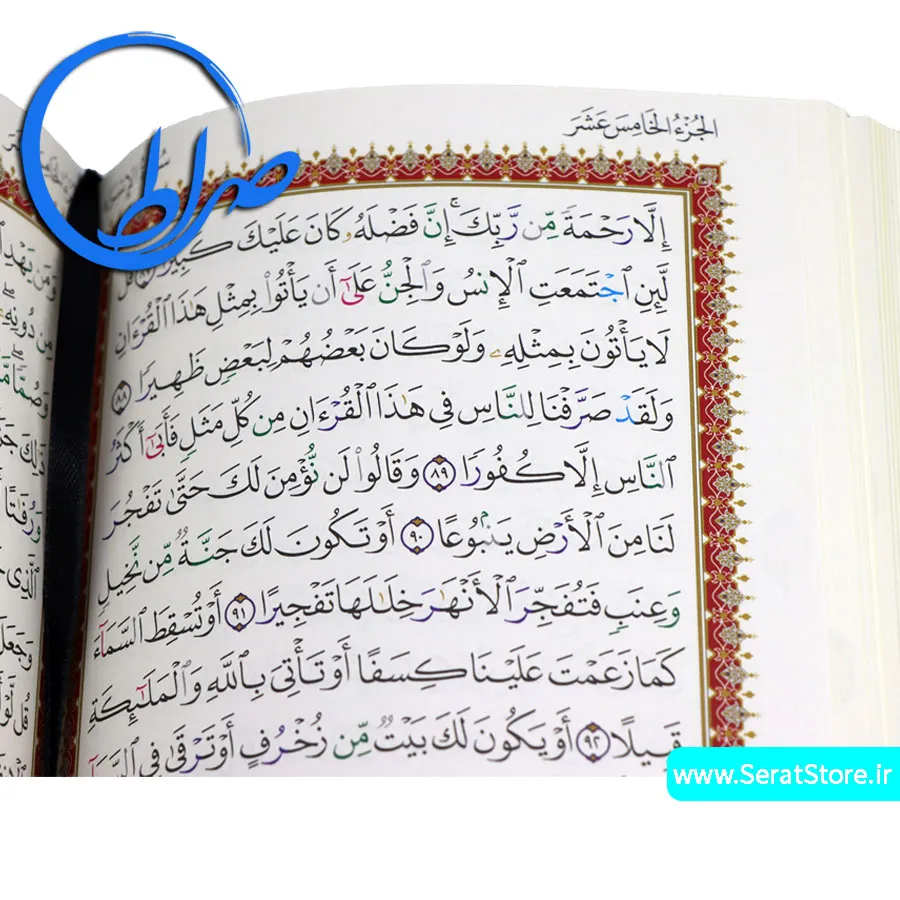 صراط
الجُزْءُ الخَامِسَ عَشَرَ
إِلَّا رَحْمَةً مِّن رَّبِّكَ ۚ إِنَّ فَضْلَهُۥ كَانَ عَلَيْكَ كَبِيرًا ٨٧ قُل
لَّئِنِ ٱجْتَمَعَتِ ٱلْإِنسُ وَٱلْجِنُّ عَلَىٰٓ أَن يَأْتُوا۟ بِمِثْلِ هَٰذَا ٱلْقُرْءَانِ
لَا يَأْتُونَ بِمِثْلِهِۦ وَلَوْ كَانَ بَعْضُهُمْ لِبَعْضٍ ظَهِيرًا ٨٨
وَلَقَدْ صَرَّفْنَا لِلنَّاسِ فِي هَٰذَا ٱلْقُرْءَانِ مِن كُلِّ مَثَلٍ فَأَبَىٰٓ أَكْثَرُ
ٱلنَّاسِ إِلَّا كُفُورًا ٨٩ وَقَالُوا۟ لَن نُّؤْمِنَ لَكَ حَتَّىٰ تَفْجُرَ
لَنَا مِنَ ٱلْأَرْضِ يَنۢبُوعًا ٩٠ أَوْ تَكُونَ لَكَ جَنَّةٌ مِّن نَّخِيلٍ
وَعِنَبٍ فَتُفَجِّرَ ٱلْأَنْهَٰرَ خِلَٰلَهَا تَفْجِيرًا ٩١ أَوْ تُسْقِطَ ٱلسَّمَآءَ
كَمَا زَعَمْتَ عَلَيْنَا كِسَفًا أَوْ تَأْتِيَ بِٱللَّهِ وَٱلْمَلَٰٓئِكَةِ
قَبِيلًا ٩٢ أَوْ يَكُونَ لَكَ بَيْتٌ مِّن زُخْرُفٍ أَوْ تَرْقَىٰ فِي ٱلسَّمَآءِ
www.SeratStore.ir